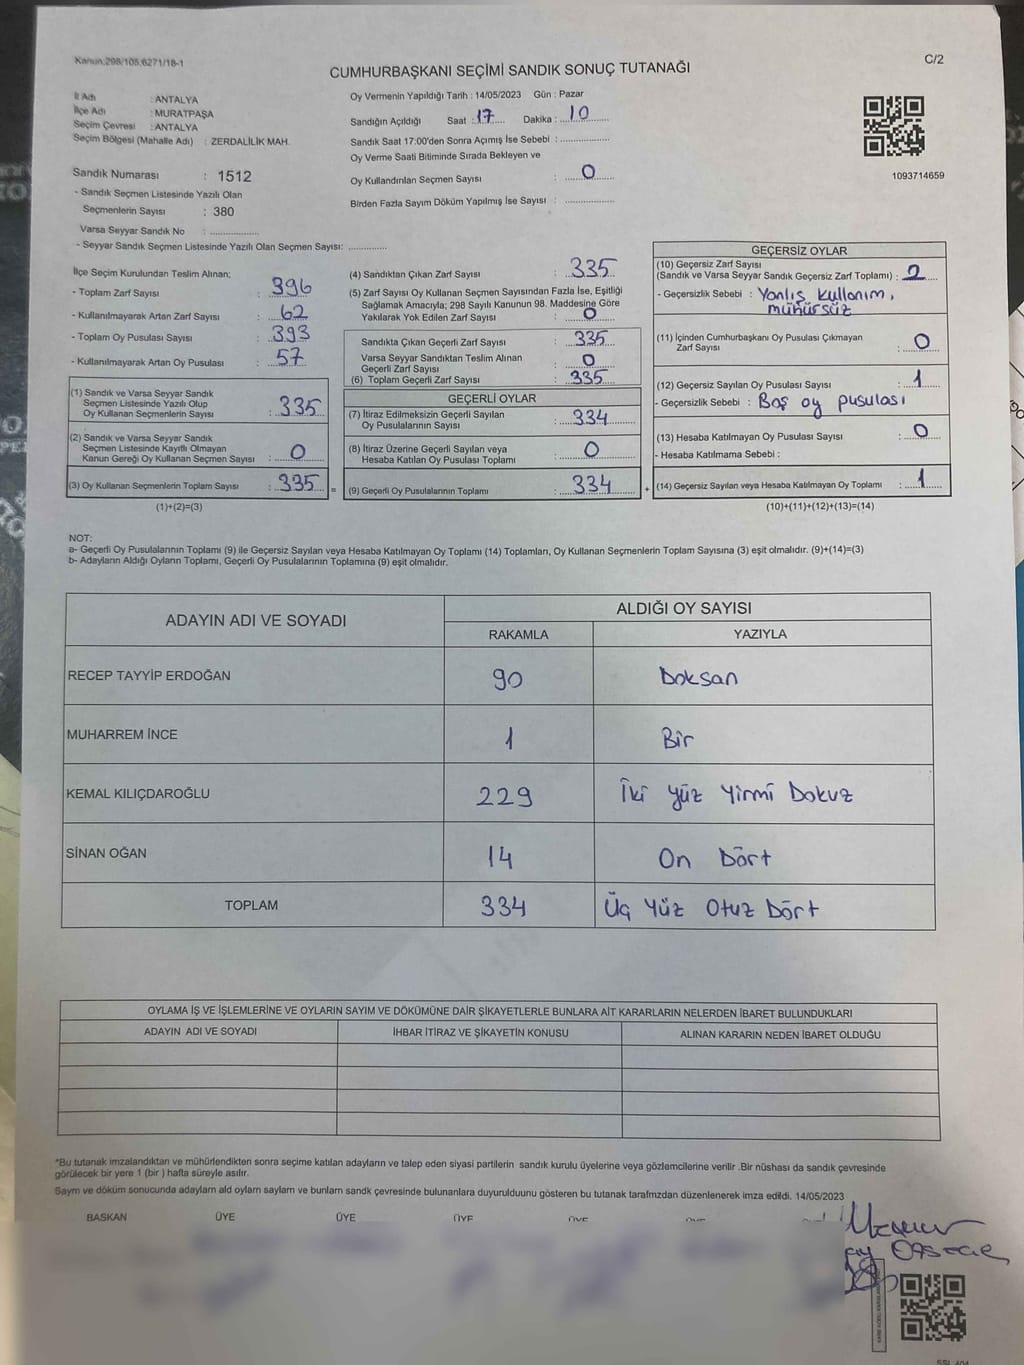 Kanun;298/105;6271/18-1
C/2
CUMHURBAŞKANI SEÇİMİ SANDIK SONUÇ TUTANAĞI
İl Adı : ANTALYA
İlçe Adı : MURATPAŞA
Seçim Çevresi : ANTALYA
Seçim Bölgesi (Mahalle Adı) : ZERDALİLİK MAH.
Sandık Numarası : 1512
- Sandık Seçmen Listesinde Yazılı Olan
Seçmenlerin Sayısı : 380
Varsa Seyyar Sandık No : ..................
- Seyyar Sandık Seçmen Listesinde Yazılı Olan Seçmen Sayısı: ..............
Oy Vermenin Yapıldığı Tarih : 14/05/2023 Gün : Pazar
Sandığın Açıldığı Saat : 17 Dakika : 10
Sandık Saat 17:00'den Sonra Açımış İse Sebebi : ..................
Oy Verme Saati Bitiminde Sırada Bekleyen ve
Oy Kullandırılan Seçmen Sayısı : 0
Birden Fazla Sayım Döküm Yapılmış İse Sayısı : ..................
1093714659
İlçe Seçim Kurulundan Teslim Alınan;
- Toplam Zarf Sayısı : 396
- Kullanılmayarak Artan Zarf Sayısı : 62
- Toplam Oy Pusulası Sayısı : 393
- Kullanılmayarak Artan Oy Pusulası : 57
(1) Sandık ve Varsa Seyyar Sandık
Seçmen Listesinde Yazılı Olup
Oy Kullanan Seçmenlerin Sayısı : 335
(2) Sandık ve Varsa Seyyar Sandık
Seçmen Listesinde Kayıtlı Olmayan
Kanun Gereği Oy Kullanan Seçmen Sayısı : 0
(3) Oy Kullanan Seçmenlerin Toplam Sayısı : 335 =
(1)+(2)=(3)
(4) Sandıktan Çıkan Zarf Sayısı : 335
(5) Zarf Sayısı Oy Kullanan Seçmen Sayısından Fazla İse, Eşitliği
Sağlamak Amacıyla; 298 Sayılı Kanunun 98. Maddesine Göre
Yakılarak Yok Edilen Zarf Sayısı : 0
Sandıkta Çıkan Geçerli Zarf Sayısı : 335
Varsa Seyyar Sandıktan Teslim Alınan
Geçerli Zarf Sayısı : 0
(6) Toplam Geçerli Zarf Sayısı : 335
GEÇERLİ OYLAR
(7) İtiraz Edilmeksizin Geçerli Sayılan
Oy Pusulalarının Sayısı : 334
(8) İtiraz Üzerine Geçerli Sayılan veya
Hesaba Katılan Oy Pusulası Toplamı : 0
(9) Geçerli Oy Pusulalarının Toplamı : 334 +
GEÇERSİZ OYLAR
(10) Geçersiz Zarf Sayısı
(Sandık ve Varsa Seyyar Sandık Geçersiz Zarf Toplamı) :
- Geçersizlik Sebebi : Yanlış kullanım,
mühürsüz
(11) İçinden Cumhurbaşkanı Oy Pusulası Çıkmayan
Zarf Sayısı : 0
(12) Geçersiz Sayılan Oy Pusulası Sayısı : 1
- Geçersizlik Sebebi : Boş oy pusulası
(13) Hesaba Katılmayan Oy Pusulası Sayısı : 0
- Hesaba Katılmama Sebebi :
(14) Geçersiz Sayılan veya Hesaba Katılmayan Oy Toplamı : 1
(10)+(11)+(12)+(13)=(14)
NOT:
a- Geçerli Oy Pusulalarının Toplamı (9) ile Geçersiz Sayılan veya Hesaba Katılmayan Oy Toplamı (14) Toplamları, Oy Kullanan Seçmenlerin Toplam Sayısına (3) eşit olmalıdır. (9)+(14)=(3)
b- Adayların Aldığı Oyların Toplamı, Geçerli Oy Pusulalarının Toplamına (9) eşit olmalıdır.
ADAYIN ADI VE SOYADI
ALDIĞI OY SAYISI
RAKAMLA YAZIYLA
RECEP TAYYİP ERDOĞAN 90 Doksan
MUHARREM İNCE 1 Bir
KEMAL KILIÇDAROĞLU 229 İki yüz Yirmi Dokuz
SİNAN OĞAN 14 On Dört
TOPLAM 334 Üç Yüz Otuz Dört
OYLAMA İŞ VE İŞLEMLERİNE VE OYLARIN SAYIM VE DÖKÜMÜNE DAİR ŞİKAYETLERLE BUNLARA AİT KARARLARIN NELERDEN İBARET BULUNDUKLARI
ADAYIN ADI VE SOYADI İHBAR İTİRAZ VE ŞİKAYETİN KONUSU ALINAN KARARIN NEDEN İBARET OLDUĞU
*Bu tutanak imzalandıktan ve mühürlendikten sonra seçime katılan adayların ve talep eden siyasi partilerin sandık kurulu üyelerine veya gözlemcilerine verilir .Bir nüshası da sandık çevresinde
görülecek bir yere 1 (bir ) hafta süreyle asılır.
Sayım ve döküm sonucunda adayların ald oyların sayları ve bunların sandk çevresinde bulunanlara duyurulduunu gösteren bu tutanak tarafmzdan düzenlenerek imza edildi. 14/05/2023
BAŞKAN ÜYE ÜYE ÜYE ÜYE